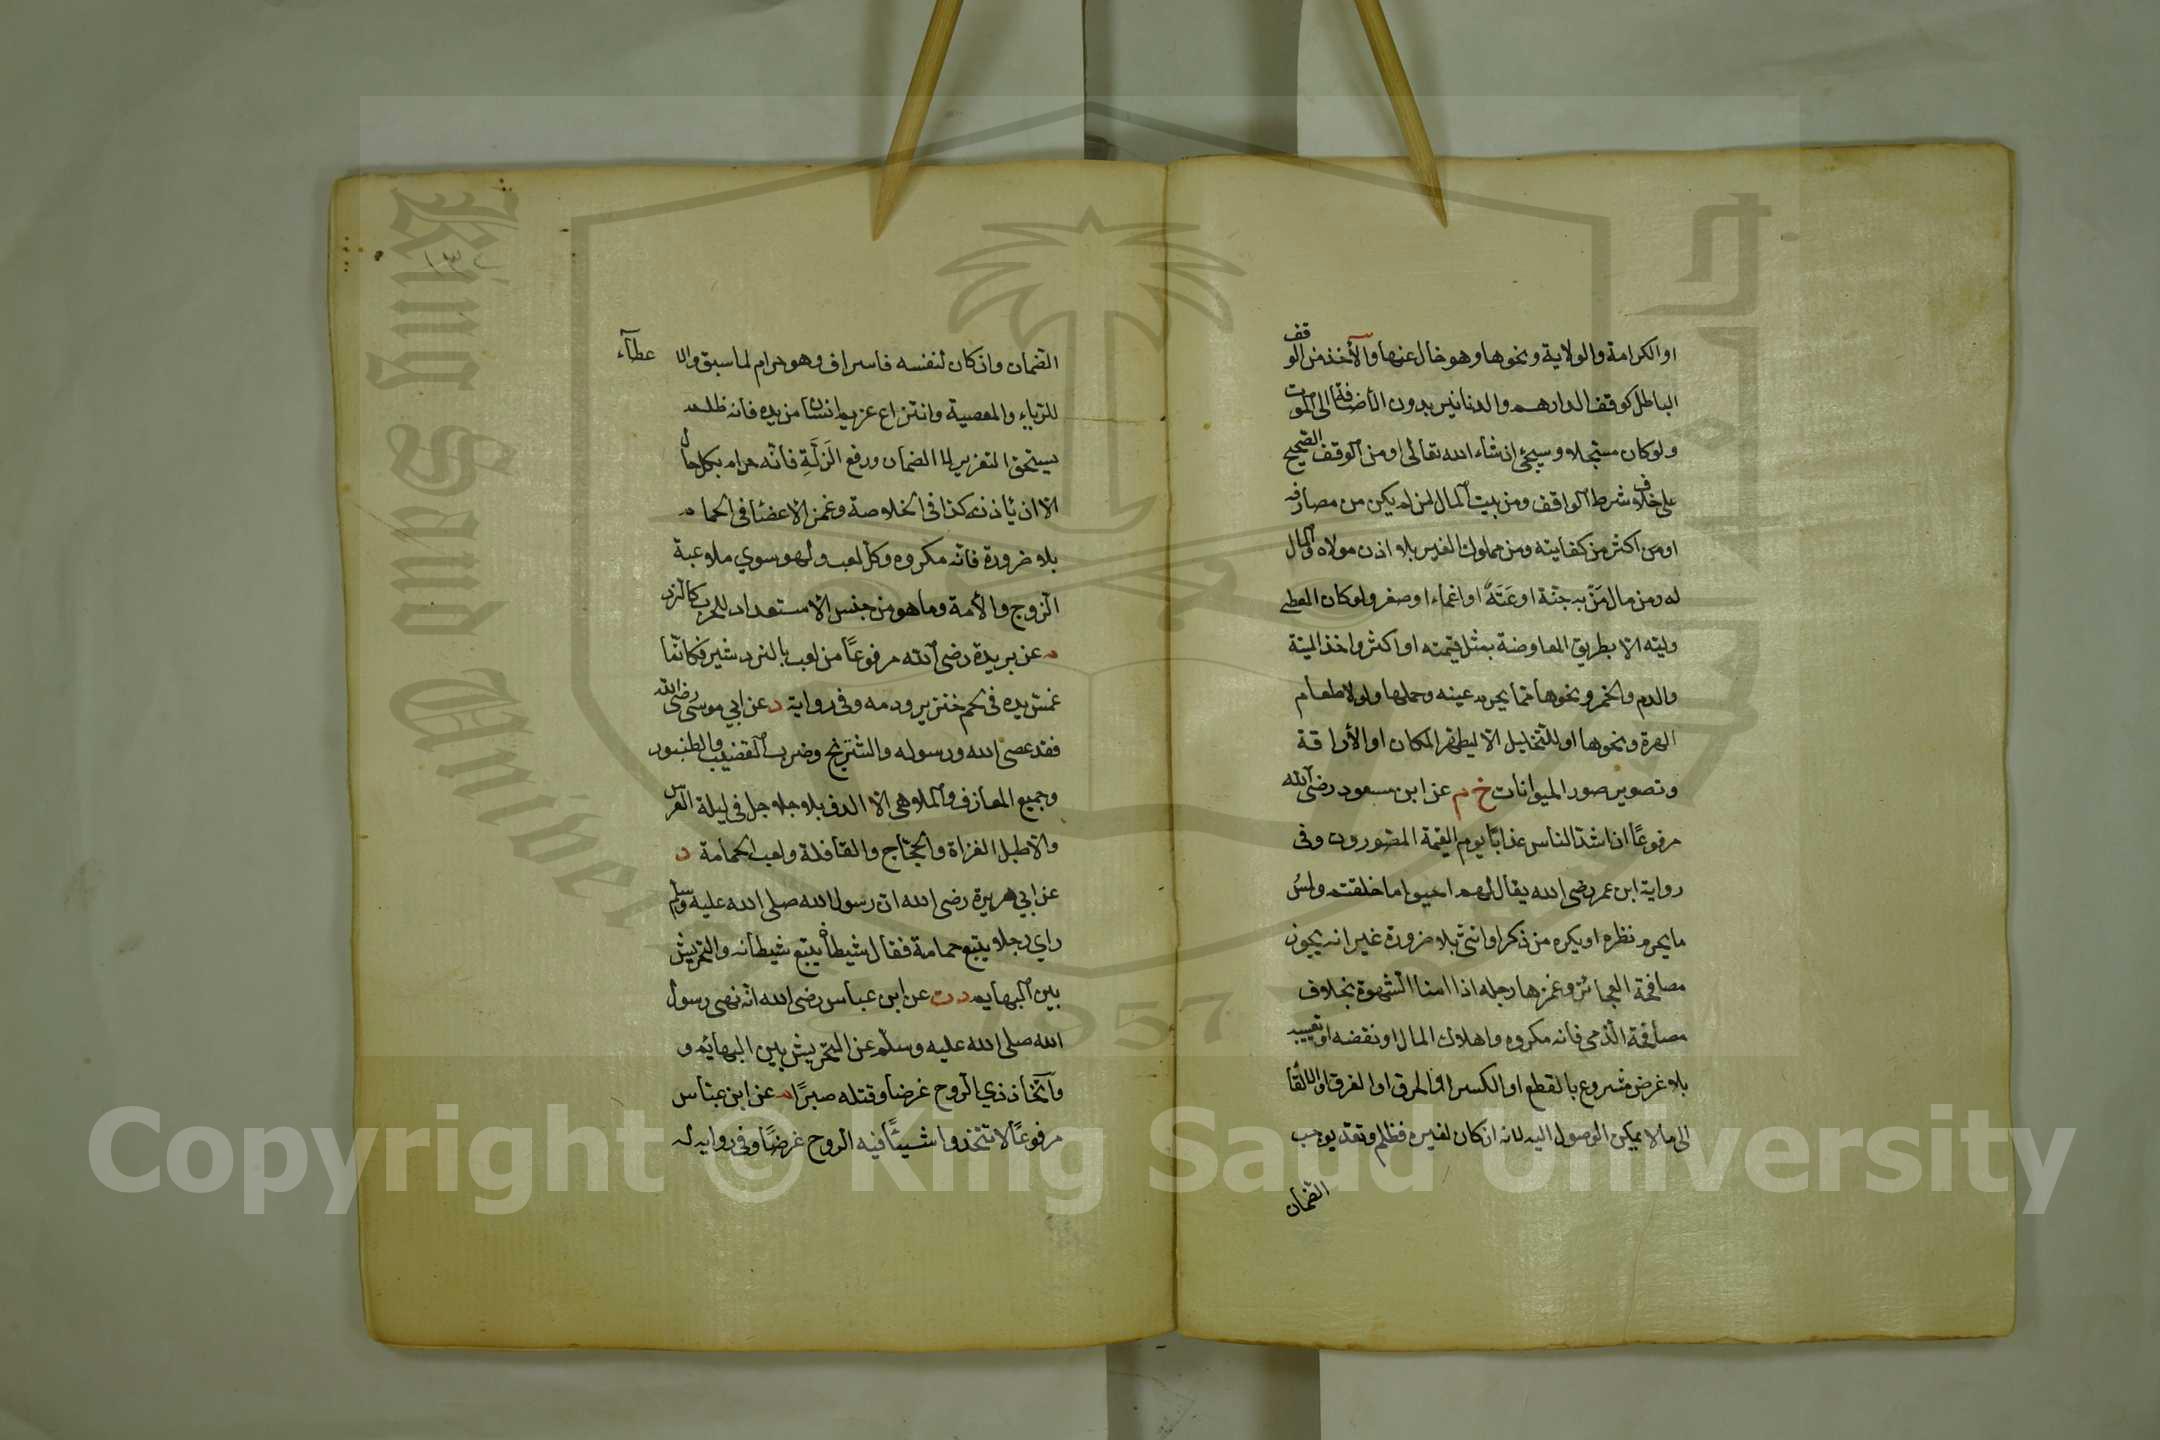 او الكرامة والولاية ونحوها وهو خال عنها والأخذ من الوقف
الباطل كوقف الدارهم والدنانير بدون الأضافة الى الموت
ولو كان مسجلا وسيجئ انشاء الله تعالى او من الوقف الصحيح
على خلاف شرط الواقف ومن بيت المال لمن لم يكن من مصارفه
او من اكثر من كفايته ومن مملوك الغير بلا اذن مولاه والمال
له ومن مال مَنْ به جنة او عَتَهٌ او اغماء او صغر ولو كان المعطى
وليّه الا بطريق المعاوضة بمثل قيمته او اكثر واخذ الميتة
والدم والخمر ونحوها مما يحرم عينه وحملها ولو لاطعام
الهرة ونحوها او للتخليل الا ليطهر المكان او الأراقة
وتصوير صور الحيوانات خ م عن ابن مسعود رضى الله
مرفوعًا ان اشدّ الناس عذابًا يوم القيمة المصورون وفى
رواية ابن عمر رضى الله يقال لهم احيوا ما خلقتم ولمسُ
ما يحرم نظره او يكره من ذكر او انثى بلا ضرورة غير انه يجوز
مصافحة العجائز وغمزها رجله اذا امنا الشهوة بخلاف
مصافحة الذمى فانه مكروه واهلاك المال او نقضه او تعييبه
بلا غرض مشروع بالقطع او الكسر او الحرق او الغرق او الالقا
الى ما لا يمكن الوصول اليه لانه ان كان لغيره فظلم وتعدّ يوجب
الضمان
الضمان وان كان لنفسه فاسراف وهو حرام لما سبق والا عطاء
للرياء والمعصية وانتزاع غريم انسان من يده فانه ظلم
يستحق التعزير لا الضمان ورفع الزَلَّةِ فانّه حرام بكل حال
الا ان يأذن كذا فى الخلاصة وغمز الأعضا فى الحمام
بلا ضرورة فانّه مكروه وكل لعب ولهو سوي ملاعبة
الزوج والأمة وما هو من جنس الاستعداد للحرب كالنرد
م عن بريدة رضى الله مرفوعًا من لعب بالنردشير فكانما
غمس يده فى لحم خنزير ودمه وفى رواية د عن ابي موسى رضى الله
فقد عصى الله ورسوله والشترنج وضرب القضيب والطنبور
وجميع المعازف والملاهى الا الدف بلا جلاجل فى ليلة العرس
والا طبل الغزاة والحجّاج والقافلة ولعب الحمامة د
عن ابي هريرة رضى الله ان رسول الله صلى الله عليه وسلم
راي رجلا يتبع حمامة فقال شيطان يتبع شيطانه والتحريش
بين البهايم د ت عن ابن عباس رضى الله انه نهى رسول
الله صلى الله عليه وسلم عن التحريش بين البهائم و
واتخاذ ذي الروح غرضا وقتله صبرًا م عن ابن عبّاس
مرفوعًا لا تتخذوا شيئًا فيه الروح غرضًا وفى رواية له
King Saud University
1957
Copyright © King Saud University